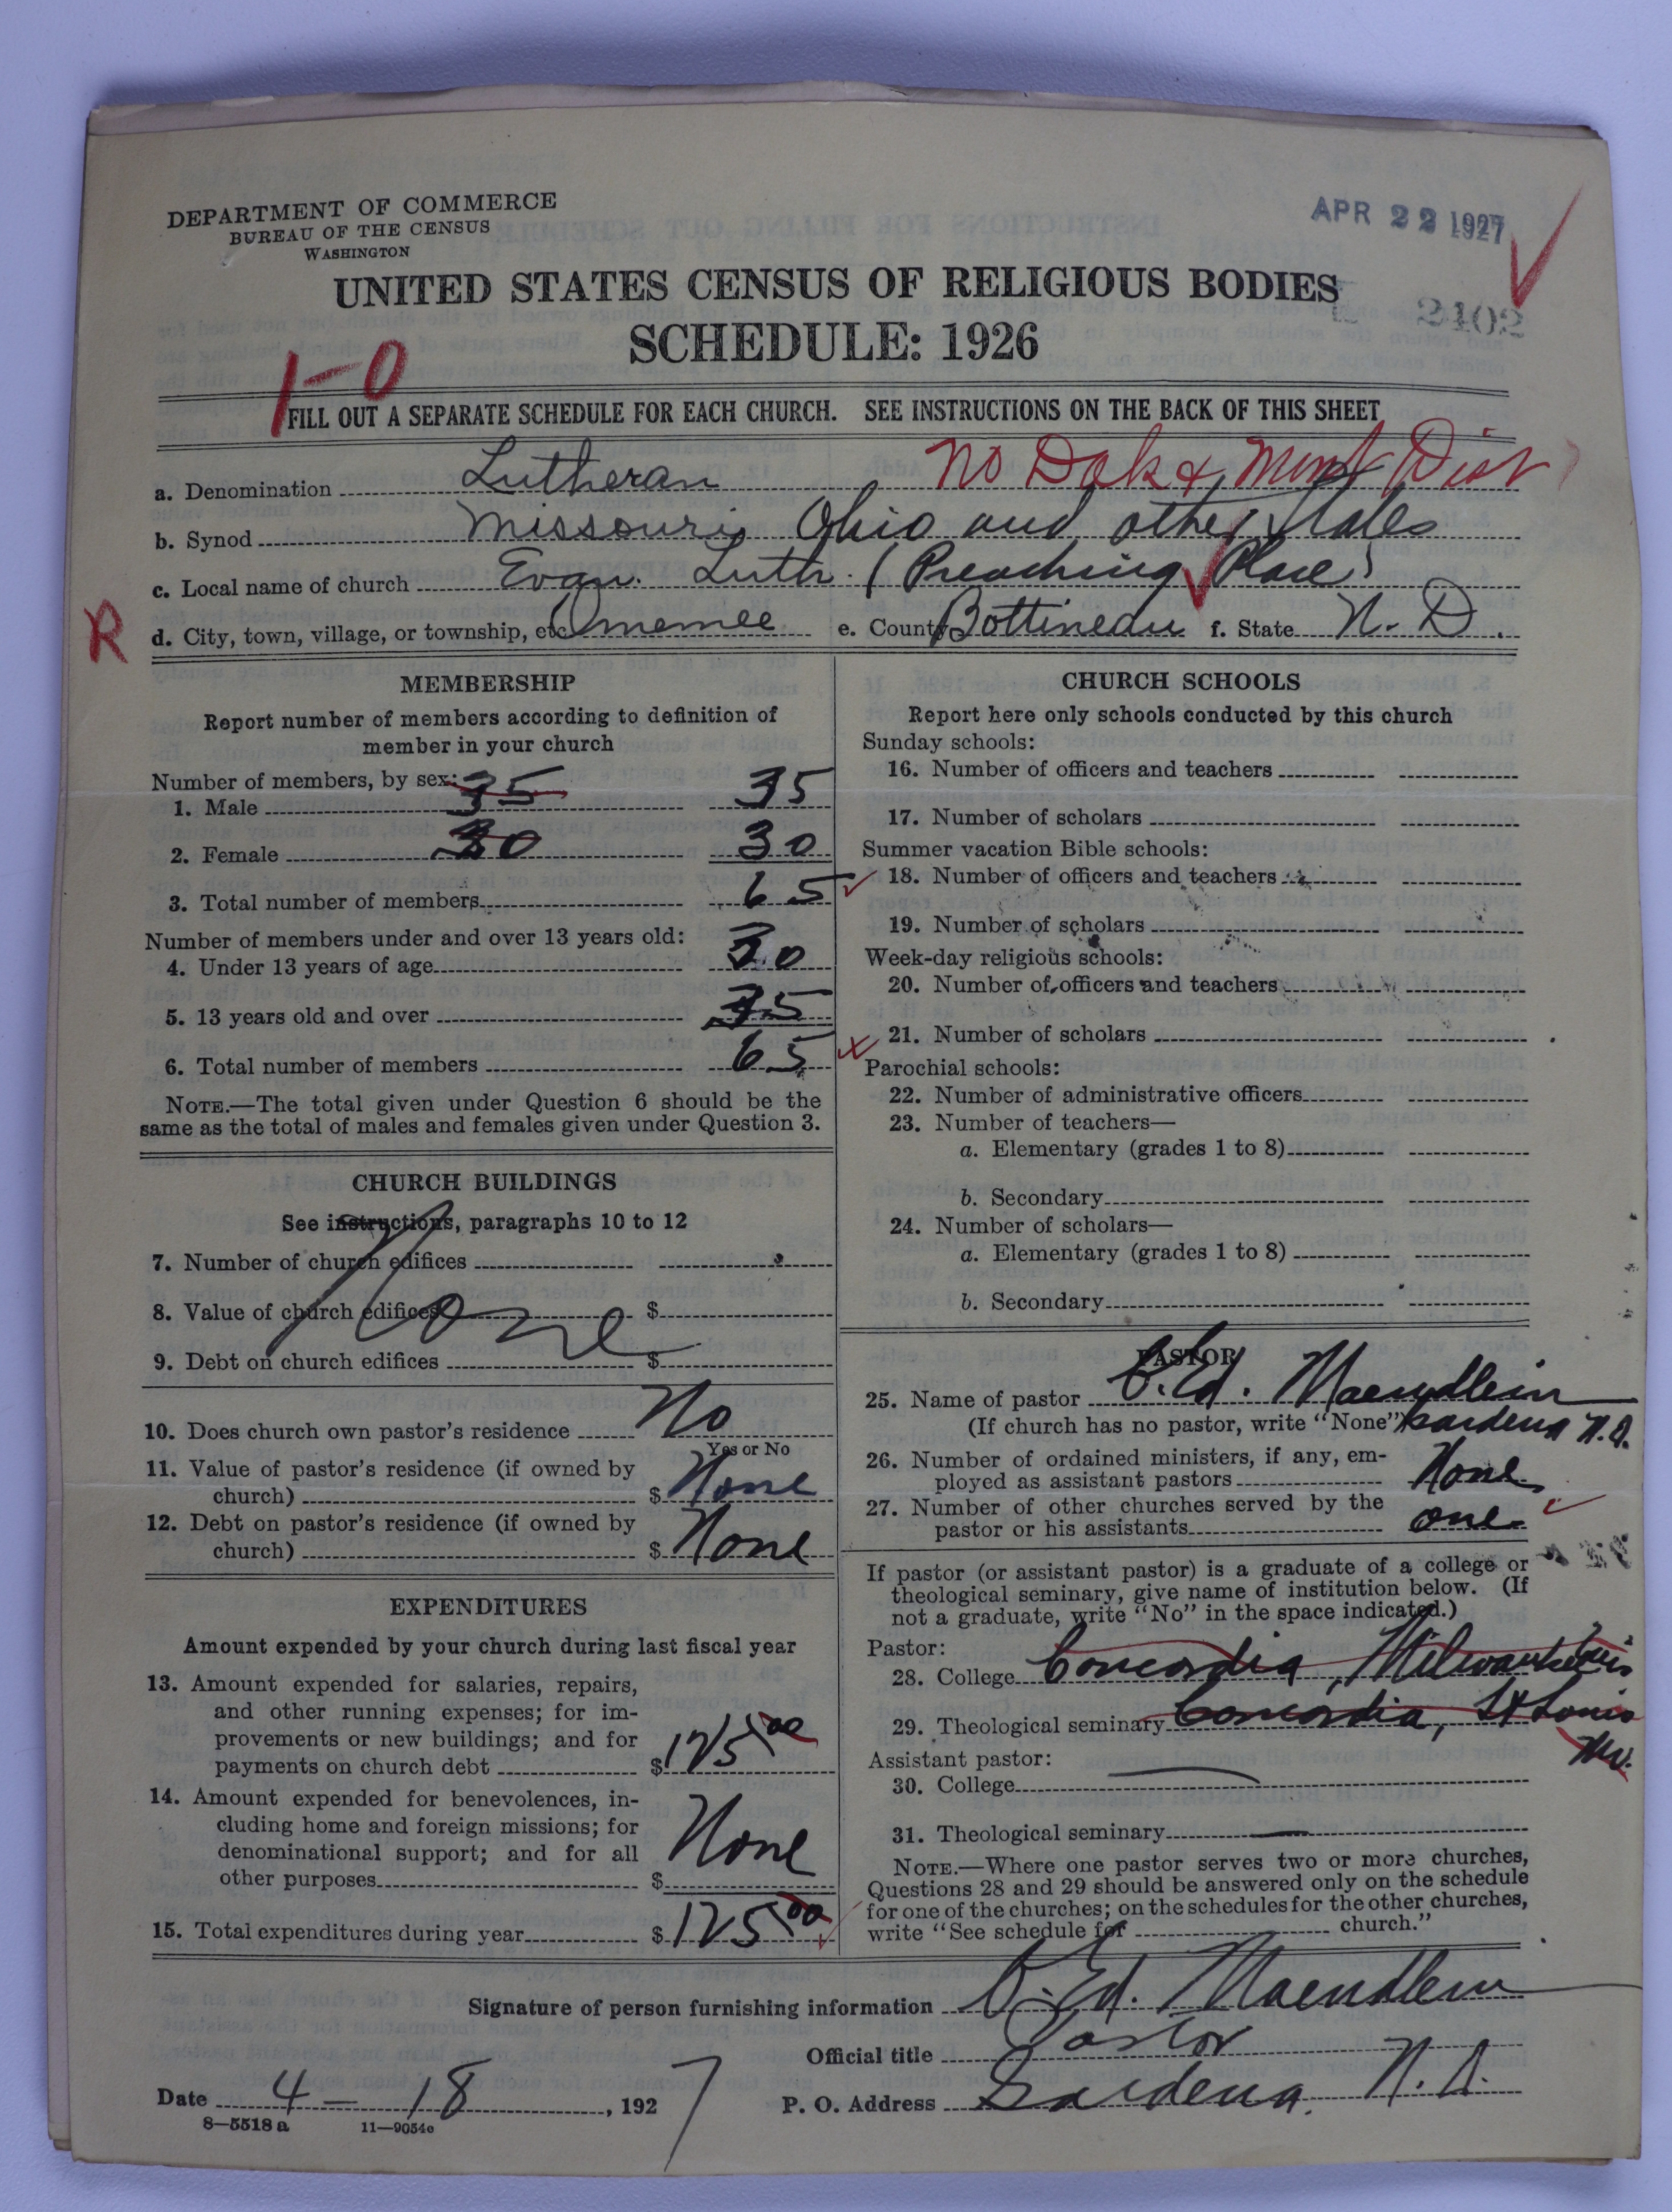 DEPARTMENT OF COMMERCE
BUREAU OF THE CENSUS
WASHINGTON
APR 22 1927
UNITED STATES CENSUS OF RELIGIOUS BODIES
SCHEDULE: 1926
2402
1-0
FILL OUT A SEPARATE SCHEDULE FOR EACH CHURCH. SEE INSTRUCTIONS ON THE BACK OF THIS SHEET
No Dak & Mont Dist
a. Denomination Lutheran
b. Synod Missouri, Ohio and other States
c. Local name of church Evan. Luth. (Preaching Place)
R
d. City, town, village, or township, etc. Omemee e. County Bottineau f. State N. D.
MEMBERSHIP
Report number of members according to definition of
member in your church
Number of members, by sex:
1. Male 35 35
2. Female 30 30
3. Total number of members 65
Number of members under and over 13 years old:
4. Under 13 years of age 30
5. 13 years old and over 35
6. Total number of members 65
NOTE.—The total given under Question 6 should be the
same as the total of males and females given under Question 3.
CHURCH BUILDINGS
See instructions, paragraphs 10 to 12
7. Number of church edifices
8. Value of church edifices $
None
9. Debt on church edifices $
10. Does church own pastor's residence No
Yes or No
11. Value of pastor's residence (if owned by
church) $ None
12. Debt on pastor's residence (if owned by
church) $ None
EXPENDITURES
Amount expended by your church during last fiscal year
13. Amount expended for salaries, repairs,
and other running expenses; for im-
provements or new buildings; and for
payments on church debt $ 125 00
14. Amount expended for benevolences, in-
cluding home and foreign missions; for
denominational support; and for all
other purposes $ None
15. Total expenditures during year $ 125 00
CHURCH SCHOOLS
Report here only schools conducted by this church
Sunday schools:
16. Number of officers and teachers
17. Number of scholars
Summer vacation Bible schools:
18. Number of officers and teachers
19. Number of scholars
Week-day religious schools:
20. Number of officers and teachers
21. Number of scholars
Parochial schools:
22. Number of administrative officers
23. Number of teachers—
a. Elementary (grades 1 to 8)
b. Secondary
24. Number of scholars—
a. Elementary (grades 1 to 8)
b. Secondary
PASTOR
25. Name of pastor C. Ed. Maendlein
(If church has no pastor, write "None") Gardena N.D.
26. Number of ordained ministers, if any, em-
ployed as assistant pastors None
27. Number of other churches served by the
pastor or his assistants one
If pastor (or assistant pastor) is a graduate of a college or
theological seminary, give name of institution below. (If
not a graduate, write "No" in the space indicated.)
Pastor:
28. College Concordia, Milwaukee Wis
29. Theological seminary Concordia, St Louis
Mo.
Assistant pastor:
30. College
31. Theological seminary
NOTE.—Where one pastor serves two or more churches,
Questions 28 and 29 should be answered only on the schedule
for one of the churches; on the schedules for the other churches,
write "See schedule for church."
Signature of person furnishing information C. Ed. Maendlein
Official title Pastor
Date 4 - 18, 1927 P. O. Address Gardena, N. D.
8—5518 a 11—9054c